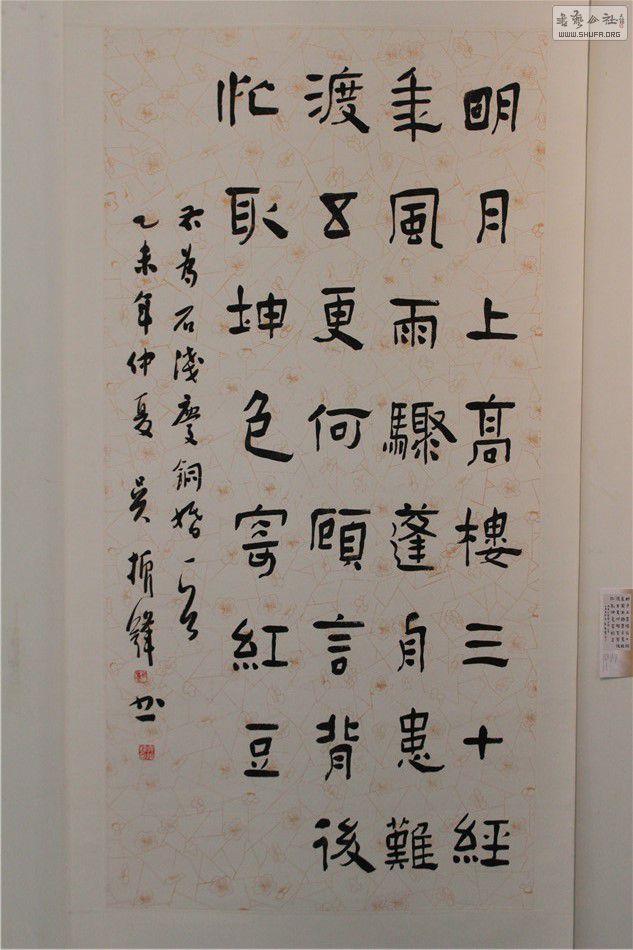 明月上高樓三十經
秊風雨驟蓬身患難
渡五更何顧言背後
忙取坤色寄紅豆
右為石淺慶銅婚
乙未年仲夏 吳振鋒書
書藝公社
WWW.SHUFA.ORG